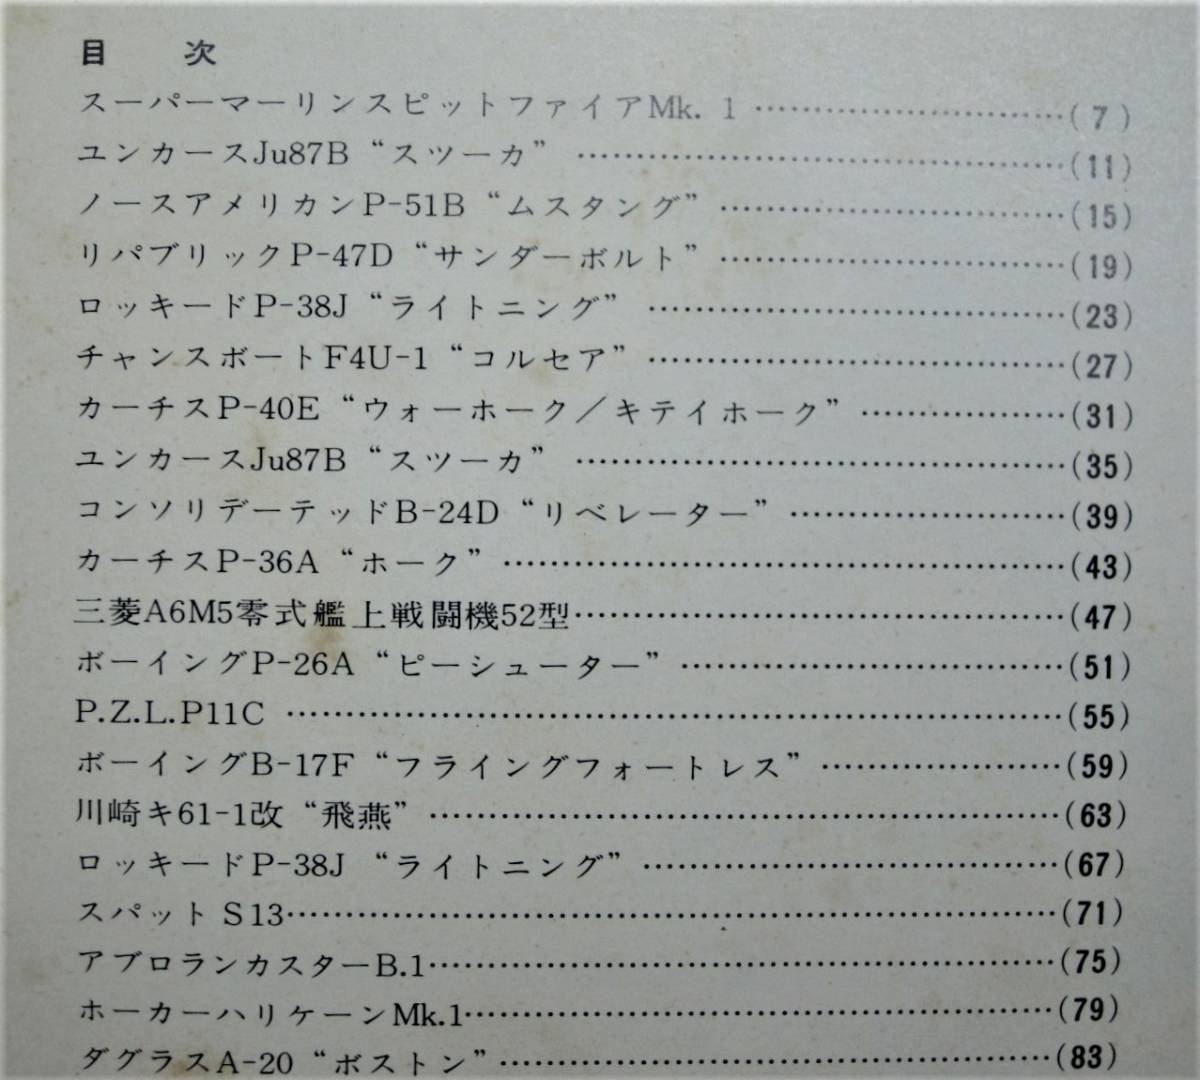 目　次
スーパーマーリンスピットファイアMk. 1 …………………………(7)
ユンカースJu87B “スツーカ” …………………………(11)
ノースアメリカンP-51B “ムスタング” …………………………(15)
リパブリックP-47D “サンダーボルト” …………………………(19)
ロッキードP-38J “ライトニング” …………………………(23)
チャンスボートF4U-1 “コルセア” …………………………(27)
カーチスP-40E “ウォーホーク／キテイホーク” …………………(31)
ユンカースJu87B “スツーカ” …………………………(35)
コンソリデーテッドB-24D “リベレーター” …………………………(39)
カーチスP-36A “ホーク” …………………………(43)
三菱A6M5零式艦上戦闘機52型…………………………(47)
ボーイングP-26A “ピーシューター” …………………………(51)
P.Z.L.P11C …………………………(55)
ボーイングB-17F “フライングフォートレス” …………………(59)
川崎キ61-1改 “飛燕” …………………………(63)
ロッキードP-38J “ライトニング” …………………………(67)
スパット S13…………………………(71)
アブロランカスターB.1…………………………(75)
ホーカーハリケーンMk.1…………………………(79)
ダグラスA-20 “ボストン” …………………………(83)